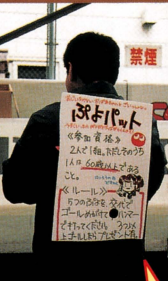 禁煙
ぷよパット
《参加資格》
2人で1組。ただしそのうち
1人は60歳以上である
こと。
《ルール》
5つのぷよを、交代で
ゴールめがけてハンマー
で打ってください。5つ以
上ゴールしたらプレゼント